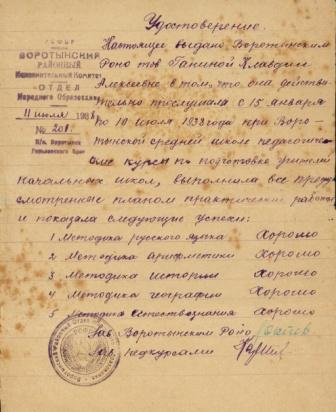 Удостоверение.
РСФСР
ВОРОТЫНСКИЙ
РАЙОННЫЙ
Исполнительный Комитет
ОТДЕЛ
Народного Образования
11 июля 1938
№ 201
П/о. Воротынец
Горьковского Края
Настоящее выдано Воротынским
Роно тов Ганиной Клавдии
Алексеевне в том, что она действи
тельно прослушала с 15 января
по 10 июля 1938 года при Воро-
тынской средней школе педагогичес
кие курсы по подготовке учителей
начальных школ, выполнила все преду
смотренные планом практические работы
и показала следующие успехи:
1 Методика русского языка Хорошо
2 Методика арифметики Хорошо
3 Методика истории Хорошо
4 Методика географии Хорошо
5 Методика естествознания Хорошо
Зав. Воротынским Роно
Зав. педкурсами